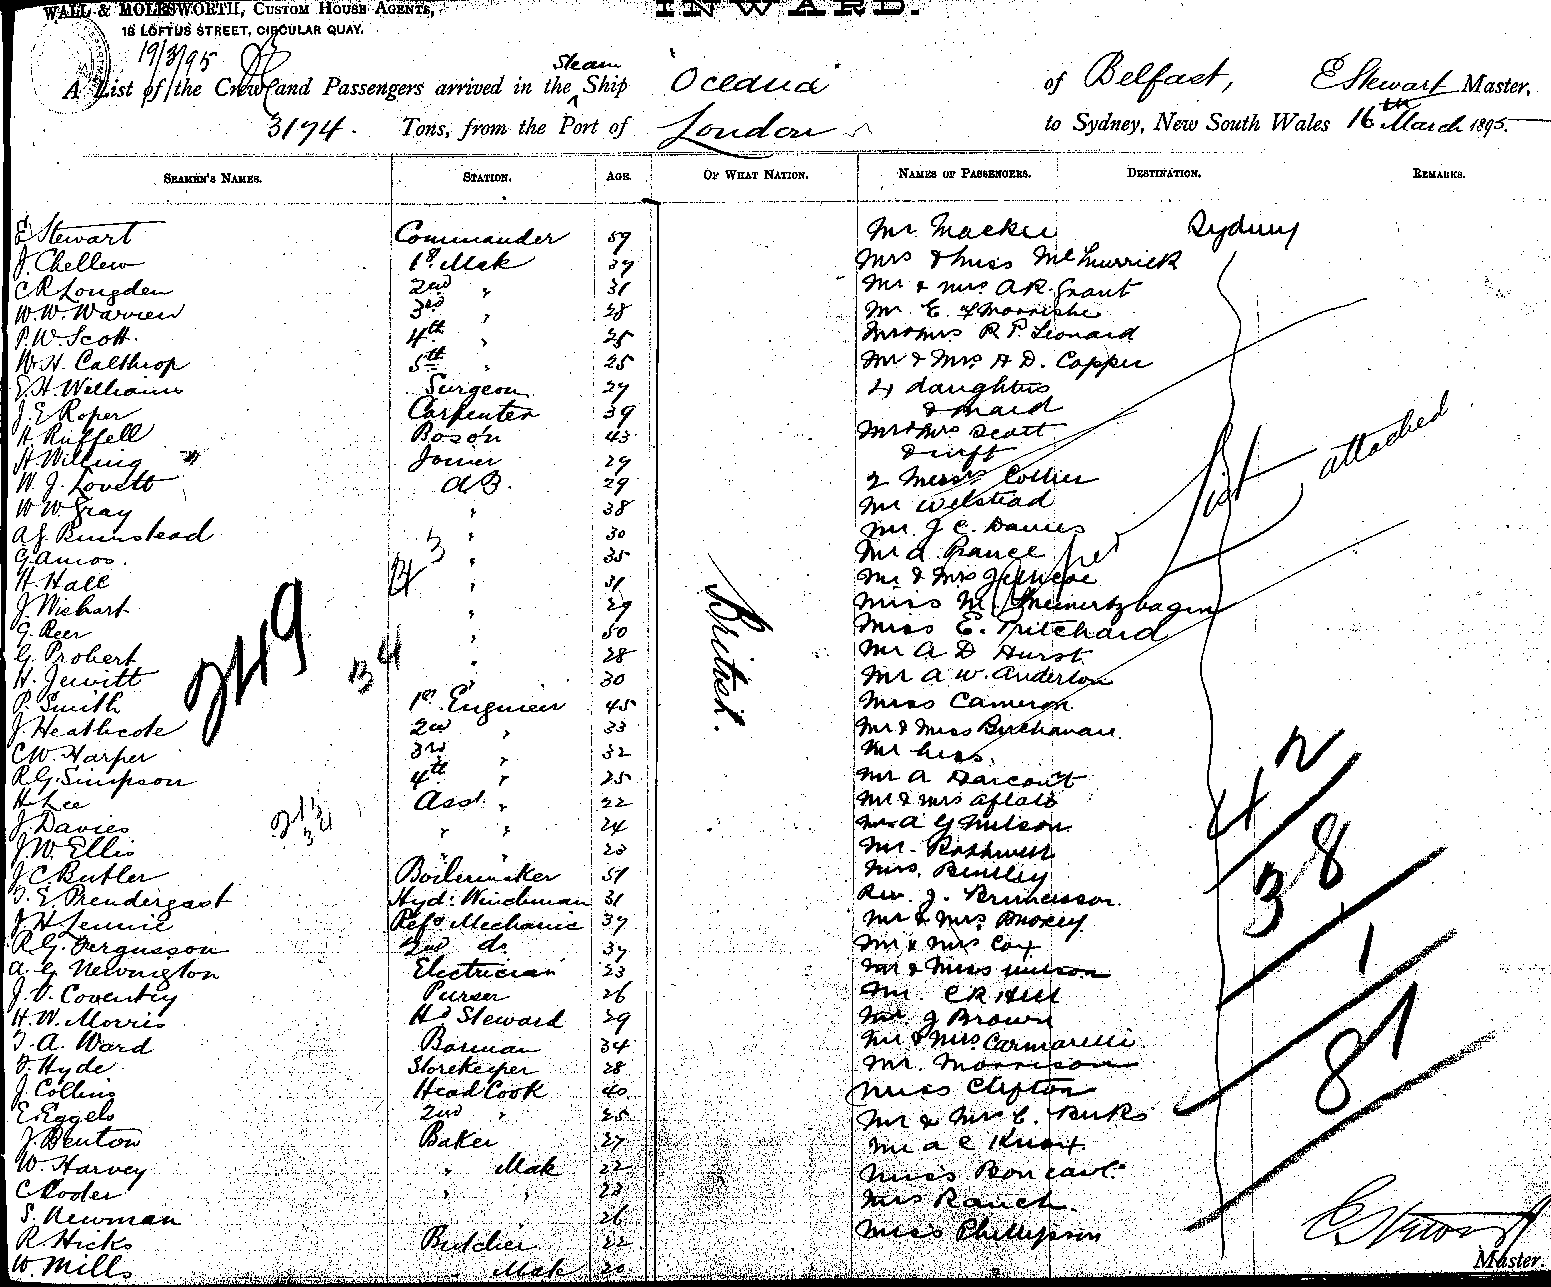 INWARD.
WALL & MOLESWORTH, CUSTOM HOUSE AGENTS,
16 LOFTUS STREET, CIRCULAR QUAY.
19/3/95
A List of the Crew and Passengers arrived in the Steam Ship "Oceana" of Belfast, E Stewart Master,
3194. Tons, from the Port of London to Sydney, New South Wales 16th March 1895.
SEAMEN'S NAMES. STATION. AGE. OF WHAT NATION. NAMES OF PASSENGERS. DESTINATION. REMARKS.
E Stewart Commander 59 Mr. Mackie Sydney
J. Chellew 1st Mate 39 Mrs & Miss McMurrick
C R Longden 2nd " 31 Mr & Mrs A R. Grant
W. W. Warren 3rd " 28 Mr. E.
P. W. Scott. 4th " 25 Mr & Mrs R P Leonard
W. H. Calthrop 5th " 25 Mr & Mrs A D. Capper
E. H. Williams Surgeon 29 4 daughters
J. E Roper Carpenter 39 & maid
H Ruffell Bos'on 43 Mr & Mrs Scott
H Willing Joiner 29 & inft
W. J. Lovett A B. 29 2 Misses Collier
W W Gray " 38 Mr Welstead
A J. Bumstead " 30 Mr. J C. Davies
G. Amos. " 35 Mr A Prance
H. Hall " 31 Mr & Mrs
J Wishart " 29 Miss M. Meinertzhagen
G. Peer " 50 Miss E. Pritchard
G. Probert " 28 Mr A D Hurst
H. Jewitt " 30 Mr A W. Anderton
P. Smith 1st Engineer 45 Miss Cameron
J. Heathcote 2nd " 33 Mr & Miss Buchanan
C W. Harper 3rd " 32 Mr
R. G. Simpson 4th " 25 Mr A Darcourt
H Lee Asst " 22 Mr & Mrs Aflalo
J Davies " " 24 A G Wilson
J. W. Ellis " " 23 Mr. Rothwell
J C Butler Boilermaker 51 Mrs. Bentley
T. E Prendergast Hyd: Winchman 31 Rev. J.
J H Lennie Refg Mechanic 37 Mr & Mrs Moxey
R G. Fergusson 2nd do 37 Mr & Mrs Cox
A. G Newington Electrician 23 Mr & Miss Wilson
J. V. Coventry Purser 26 Mr. C R Hill
H. W. Morris Hd Steward 29 Mr J Brown
T. A. Ward Barman 34 Mr & Mrs
F Hyde Storekeeper 28 Mr. Morrison
J. Collins Head Cook 40 Miss Clifton
E. Eggels 2nd " 25 Mr & Mrs C. Birks
J Benton Baker 27 Mr A C Knox
W. Harvey " Mate 22 Miss
C Roder " " 22 Mrs Ranch.
S. Newman 26 Miss Phillipson
R Hicks Butcher 22
W. Mills " Mate 20
British.
per list attached
249
34
42
38
1
81
E Stewart
Master.